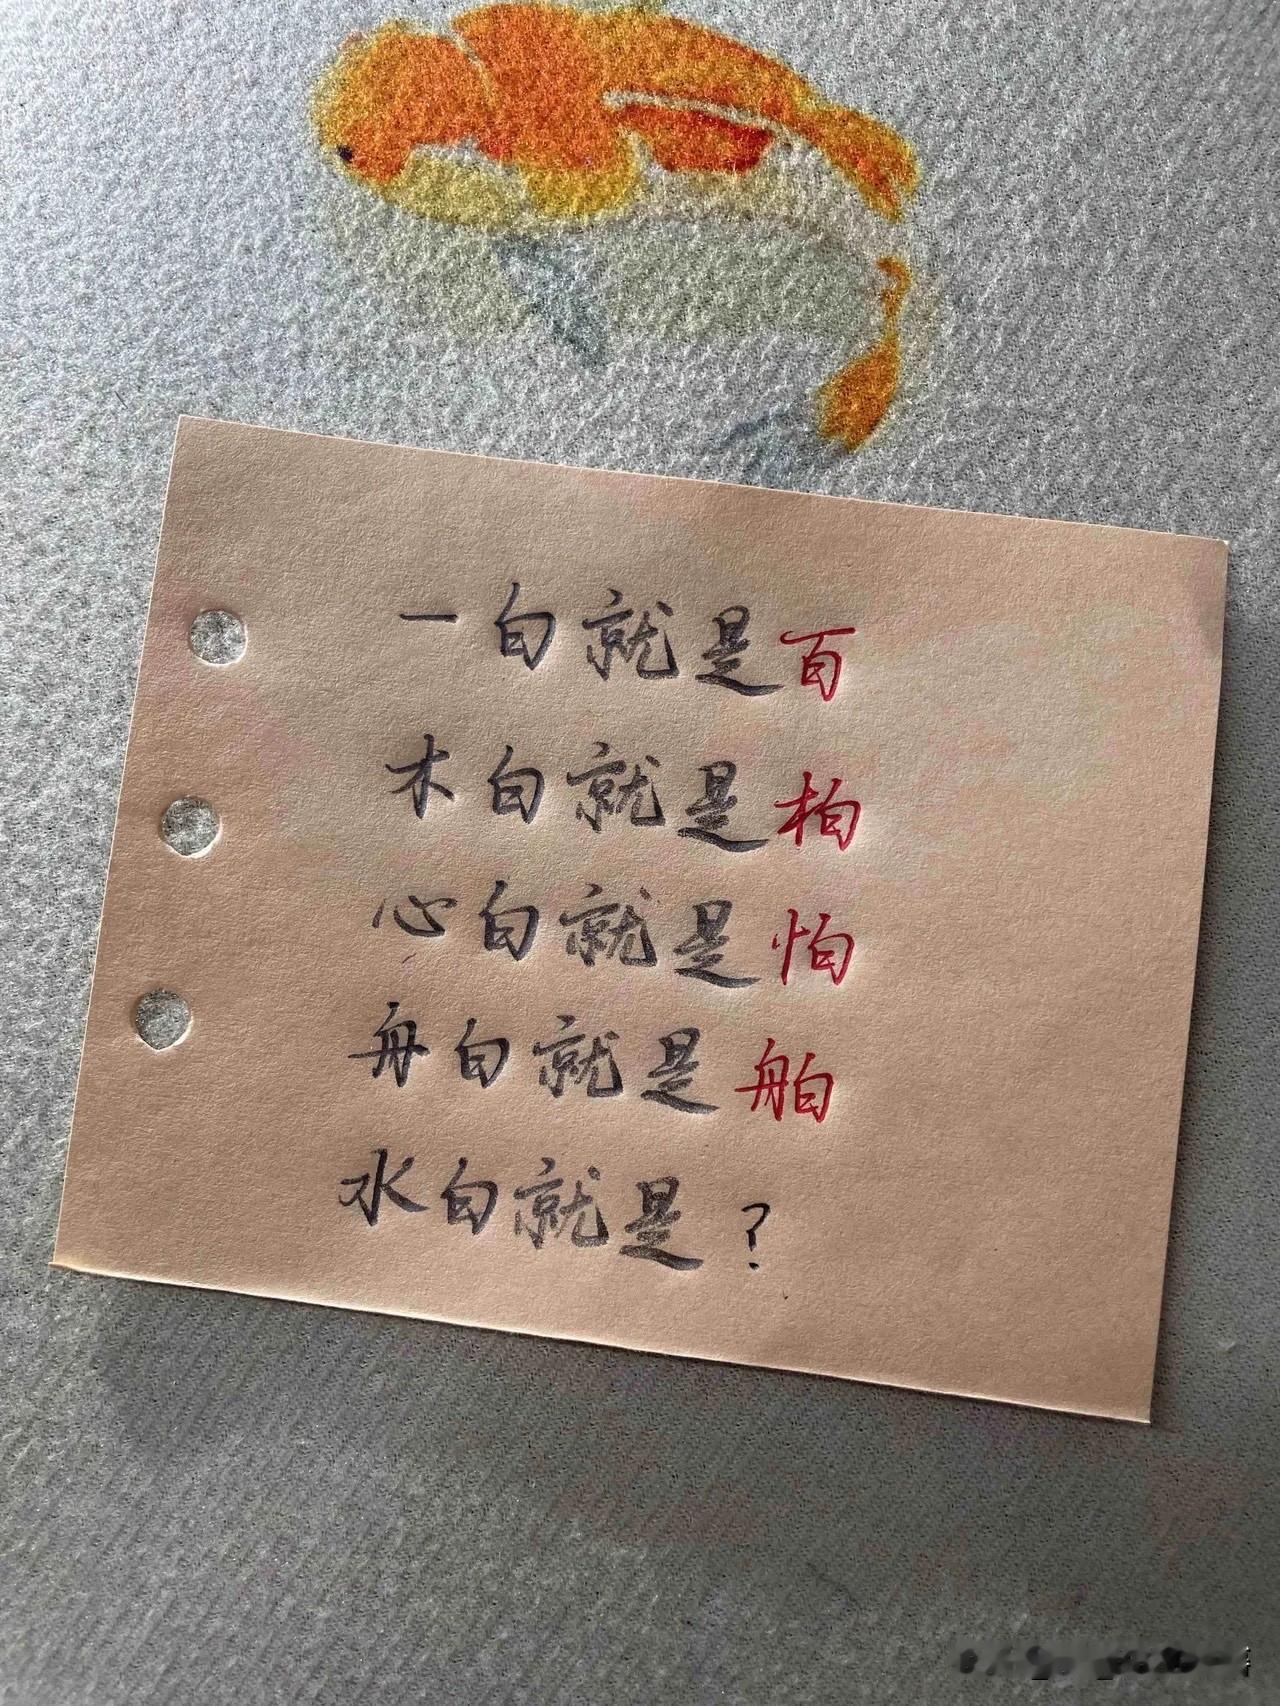 一白就是百
木白就是柏
心白就是怕
舟白就是舶
水白就是?